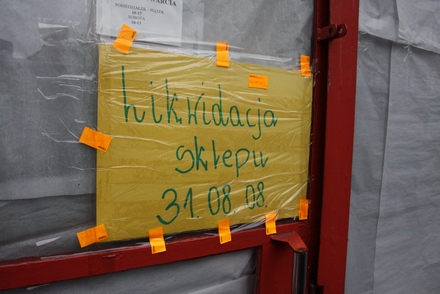 WARCIA
PONIEDZIAŁEK - PIĄTEK
10-17
SOBOTA
10-13
Likwidacja
sklepu
31.08.08.